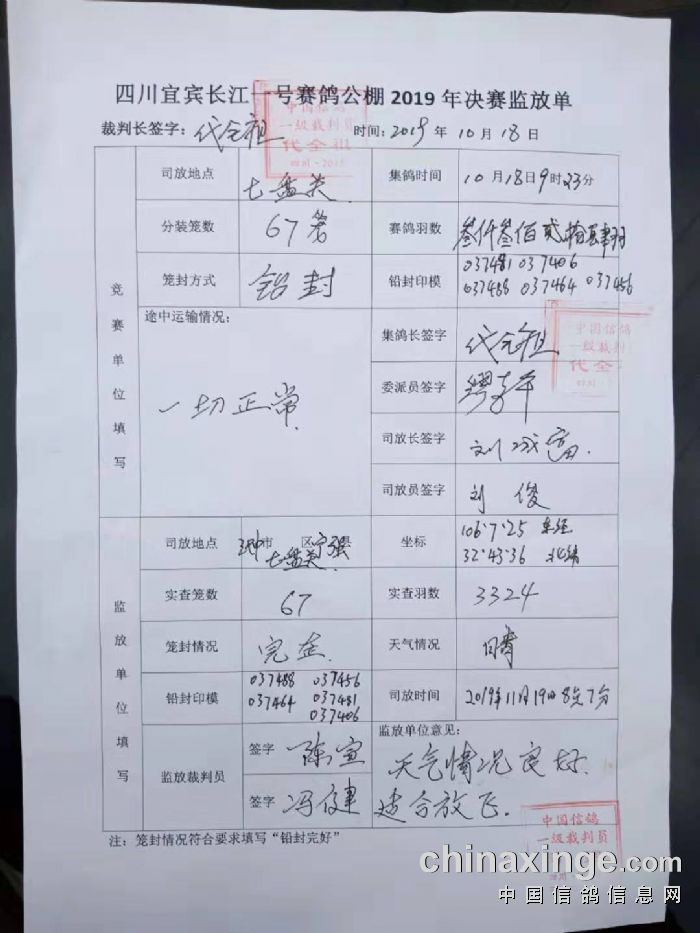 四川宜宾长江一号赛鸽公棚 2019 年决赛监放单
裁判长签字: 代全祖 时间: 2019 年 10 月 18 日
中国信鸽
一级裁判员
代全祖
竞赛单位填写
司放地点 七盘关 集鸽时间 10 月 18 日 9 时 23 分
分装笼数 67 赛鸽羽数 叁仟叁佰贰拾肆羽
笼封方式 铅封 铅封印模 037481 037406
037488 037464 037456
途中运输情况:
一切正常
集鸽长签字 代全祖
中国信鸽
一级裁判
代全
委派员签字
司放长签字 刘
司放员签字 刘俊
监放单位填写
司放地点 市 区 县 七盘关 宁强 坐标 106°7'25 东经
32°43'36 北纬
实查笼数 67 实查羽数 3324
笼封情况 完好 天气情况 晴
铅封印模 037488 037456
037464 037481
037406
司放时间 2019年11月19日8点7分
监放裁判员 签字 陈宣
签字 冯健
监放单位意见:
天气情况良好
适合放飞.
中国信鸽
一级裁判员
注: 笼封情况符合要求填写“铅封完好”
chinaxinge.com
中国信鸽信息网